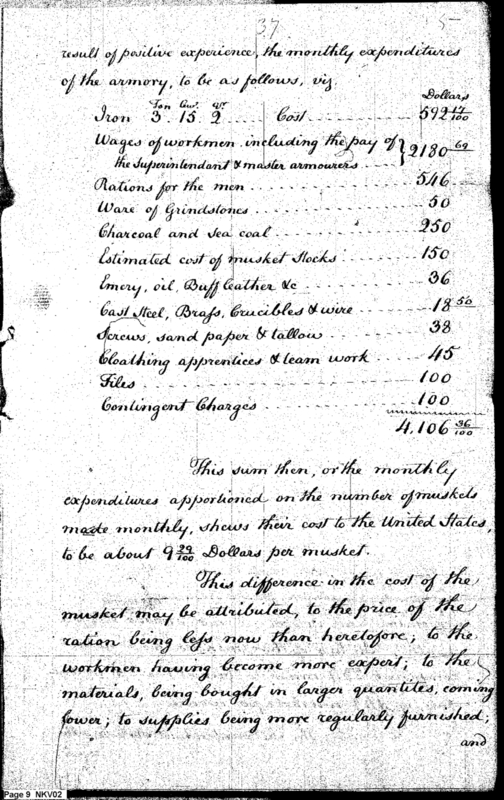 37 5
result of positive experience, the monthly expenditures
of the armory, to be as follows, viz.
Dollars
Ton Cwt. qr
Iron 3. 15. 2 .... Cost .......... 592 17/100
Wages of workmen including the pay of
the Superintendant & master armourers } 2180 69
Rations for the men .......... 546
Ware of Grindstones .......... 50
Charcoal and Sea coal .......... 250
Estimated cost of musket Stocks .......... 150
Emery, oil, Buff leather &c .......... 36
Cast Steel, Brass, Crucibles & wire .......... 18 50
Screws, sand paper & tallow .......... 38
Cloathing apprentices & team work .......... 45
Files .......... 100
Contingent Charges .......... 100
4,106 36/100
This sum then, or the monthly
expenditures apportioned on the number of muskets
made monthly, shews their cost to the United States,
to be about 9 29/100 Dollars per musket.
This difference in the cost of the
musket may be attributed, to the price of the
ration being less now than heretofore; to the
workmen having become more expert; to the
materials, being bought in larger quantites, coming
lower; to supplies being more regularly furnished;
and
Page 9 NKV02